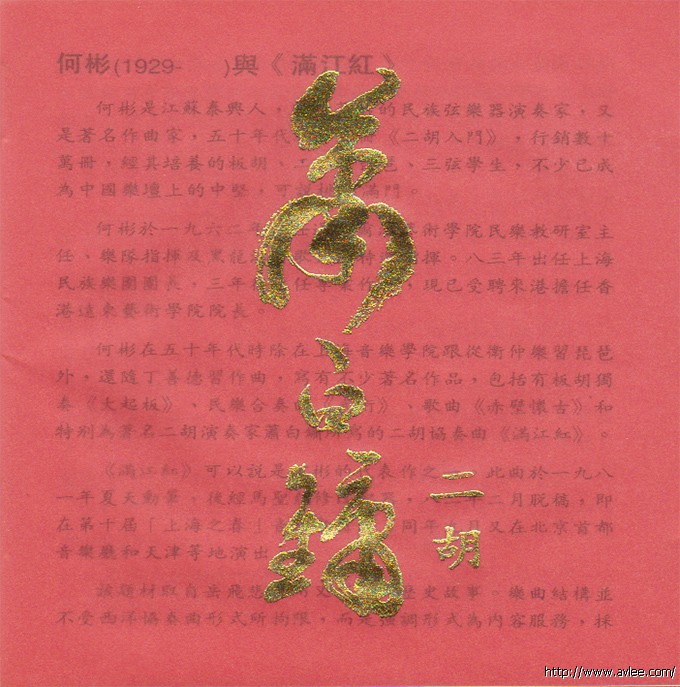 何彬(1929-　　)與《滿江紅》
何彬是江蘇泰興人，的民族弦樂器演奏家，又
是著名作曲家，五十年代《二胡入門》，行銷數十
萬冊，經其培養的板胡、二、三弦學生，不少已成
為中國樂壇上的中堅，可滿門。
何彬於一九六二年術學院民樂教研室主
任、樂隊指揮及黑龍特揮。八三年出任上海
民族樂團團長，三年任專業作，現已受聘來港擔任香
港遠東藝術學院院長。
何彬在五十年代時除在上海音樂學院跟從衛仲樂習琵琶
外，還隨丁善德習作曲，寫有不少著名作品，包括有板胡獨
奏《大起板》、民樂合奏行》、歌曲《赤壁懷古》和
特別為著名二胡演奏家蕭白鏞所寫的二胡協奏曲《滿江紅》。
《滿江紅》可以說是何彬的代表作之一。此曲於一九八
一年夏天動筆，後經馬聖，八二月脫稿，即
在第十屆「上海之春」同年月又在北京首都
音樂廳和天津等地演出
該題材取自岳飛歷史故事。樂曲結構並
不受西洋協奏曲形式所拘限，而是強調形式為內容服務，採
蕭白鏞
二胡
http://www.avlee.com/